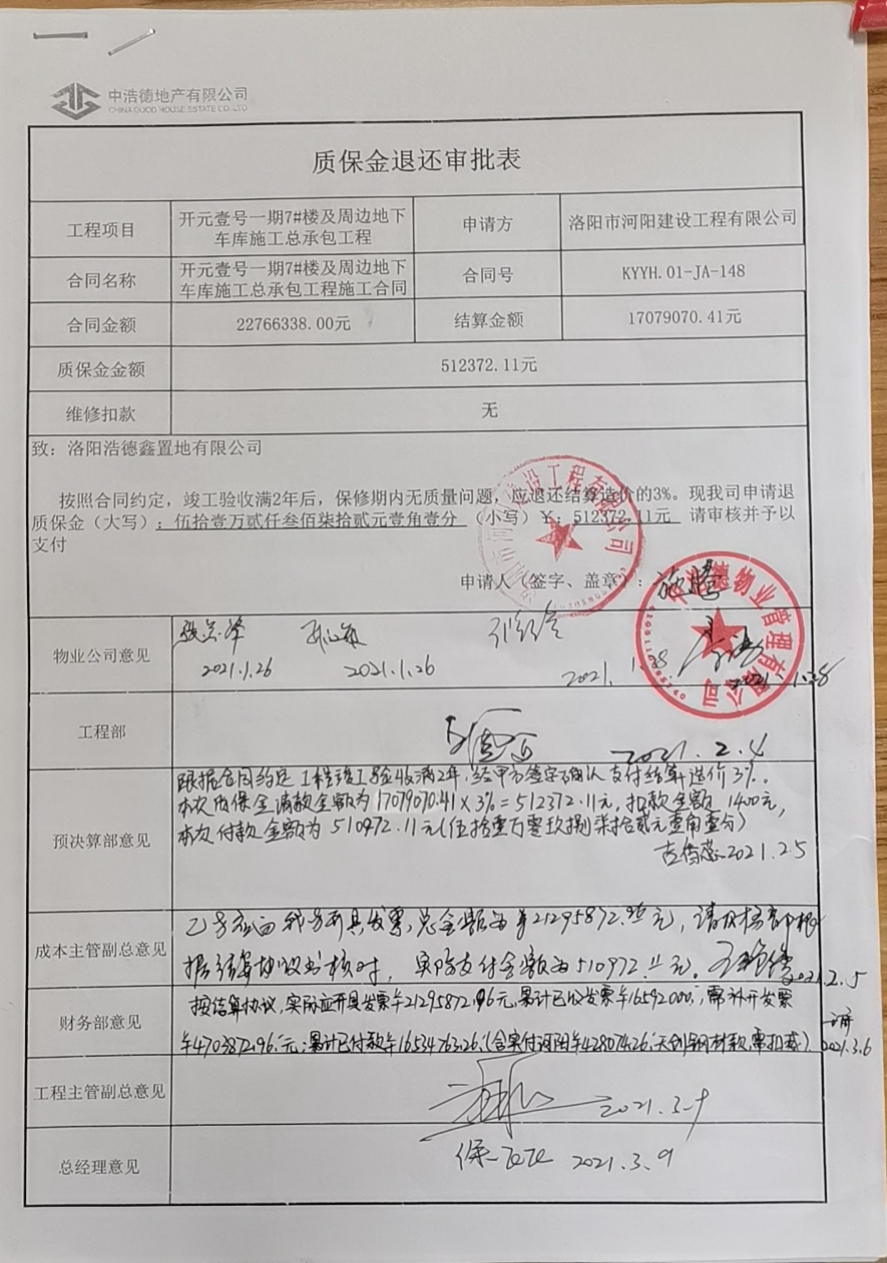 中浩德地产有限公司
CHINA GOOD HOUSE ESTATE CO.,LTD
质保金退还审批表
工程项目 开元壹号一期7#楼及周边地下车库施工总承包工程 申请方 洛阳市河阳建设工程有限公司
合同名称 开元壹号一期7#楼及周边地下车库施工总承包工程施工合同 合同号 KYYH.01-JA-148
合同金额 22766338.00元 结算金额 17079070.41元
质保金金额 512372.11元
维修扣款 无
致：洛阳浩德鑫置地有限公司
按照合同约定，竣工验收满2年后，保修期内无质量问题，应退还结算造价的3%。现我司申请退
质保金（大写）：伍拾壹万贰仟叁佰柒拾贰元壹角壹分 （小写）¥：512372.11元 请审核并予以
支付
申请人（签字、盖章）：
物业公司意见
2021.1.26 2021.1.26 2021.1.28 2021.1.28
工程部 2021.2.4
预决算部意见
跟据合同约定工程竣工验收满2年，经甲方签字确认支付结算造价3%。
本次质保金请款金额为17079070.41×3%=512372.11元，扣款金额1400元，
本次付款金额为510972.11元(伍拾壹万零玖捌柒拾贰元壹角壹分)
2021.2.5
成本主管副总意见
乙方应向我方开具发票，总金额为¥21295872.96元，请财务部根
据结算协议书核对，实际支付金额为510972.11元。
2021.2.5
财务部意见
按结算协议，实际应开具发票¥21295872.96元，累计已收发票¥16592000，需补开发票
¥4703872.96元；累计已付款¥16534763.26（含实付河阳¥428074.26，天创钢材款，需扣减）
2021.3.6
工程主管副总意见 2021.3.9
总经理意见 2021.3.9